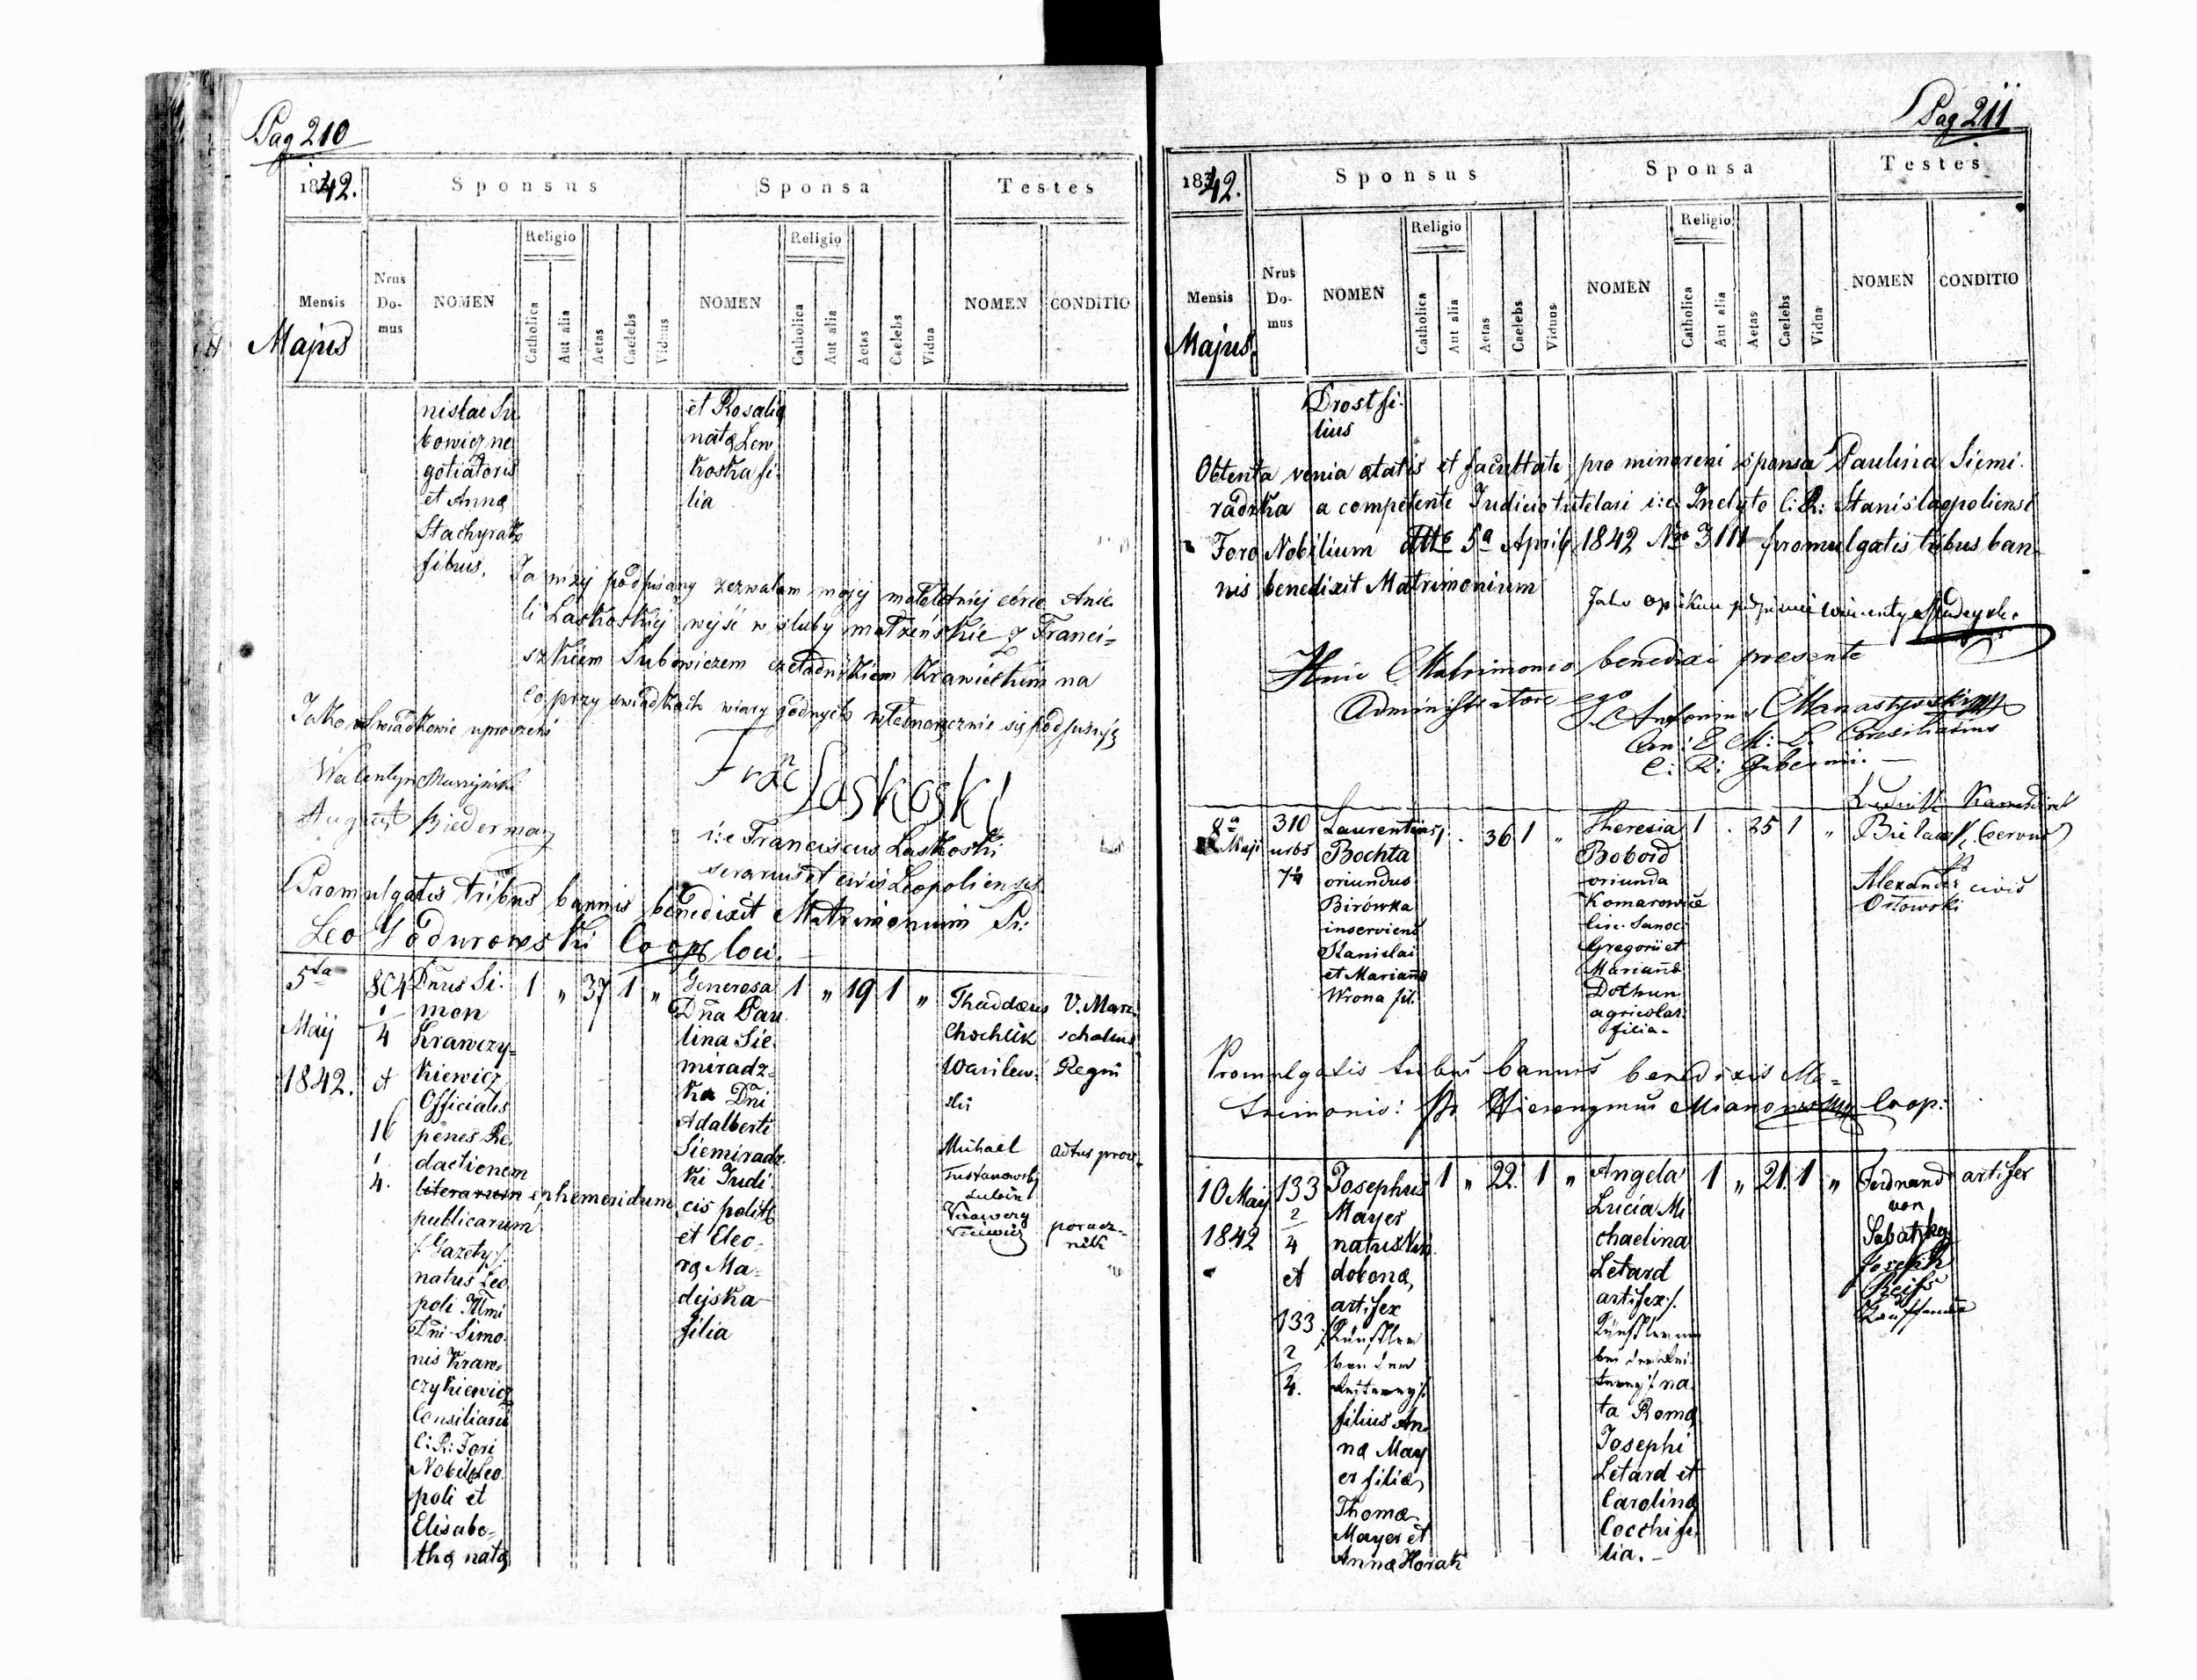 Pag 210
1842.
Sponsus
Sponsa
Testes
Mensis
Majus
Nrus Domus
NOMEN
Religio
Catholica
Aut alia
Aetas
Caelebs
Viduus
NOMEN
Religio
Catholica
Aut alia
Aetas
Caelebs
Vidua
NOMEN
CONDITIO
nislai Su
bowicz ne
gotiatoris
et Anna
Stachyrak
filius.
et Rosalia
nata Lew
koska fi
lia
Ja niżej podpisany zezwalam mojej małoletniej córce Anie
li Laskoskiej wejść w śluby małżeńskie z Franci=
szkiem Subowiczem czeladnikiem Krawieckim na
co przy swiadkach wiary godnych własnoręcznie się podpisuję
Jako swiadkowie uproszeni
Walentyn
August Biederman
Franc Laskoski
i:e Franciscus Laskoski
serarius et civis Leopoliensis
Promulgatis tribus bannis benedixit Matrimonium
Leo Godurowski Coop loci.
5ta
Maij
1842.
804
1
4
et
16
1
4.
Dñus Si-
mon
Krawczy=
kiewicz
Officialis
penes Re-
dactionem
literarum ephemeridum
publicarum
/: Gazety /:
natus Leo
poli
Dñi Simo-
nis Kraw-
czykiewicz
Consiliarii
C: R: Fori
Nobil Leo
poli et
Elisabe=
tha nata
1 " 37 1 "
Generosa
Dña Pau
lina Sie-
miradz=
ka Dñi
Adalberti
Siemiradz
ki Judi
cis polit
et Eleo-
ra Ma-
dejska
filia
1 " 19 1 "
Thaddæus
Chochlik
Wasilew-
ski
V. Mare
schalus
Regni
Michael
Tustanowski
adtus prov.
porucz-
nik
Pag 211
1842.
Sponsus
Sponsa
Testes
Mensis
Majus.
Nrus Domus
NOMEN
Religio
Catholica
Aut alia
Aetas
Caelebs
Viduus
NOMEN
Religio
Catholica
Aut alia
Aetas
Caelebs
Vidua
NOMEN
CONDITIO
Drost fi-
lius
Obtenta venia ætatis et facultate pro minoreni sponsa Paulina Siemi-
radzka a competente Judicio tutelari i:e: Inclyto C: R: Stanislaopoliensi
Foro Nobilium 5a April 1842 No 3111 promulgatis tribus ban-
nis benedixit Matrimonium
Jako opiekun Wincenty
Huic Matrimonio benedixi presente
Administratore ego
Antonius Manastyrski
Consiliarius
C: R: Gubernii.
8a
Maji
310
urbs
74
Laurentius
Bochta
oriundus
Birówka
inserviens
Stanislai
et Marianna
Wrona fil.
1 . 36 1 "
Theresia
Boboid
oriunda
Komarowice
circ. Sanoc
Gregorii et
Marianna
Dothun
agricolar
filia-
1 . 25 1 "
Alexander
Orłowski
civis
Promulgatis tribus bannis benedixit Ma-
trimonio: Hieronymus Mianowski Coop:
10 Maij
1842
133
2
4
et
133
2
4.
Josephus
Mayer
natus Vin
dobona,
artifex
/:Künstler
filius An
na May
er filia
Thoma
Mayer et
Anna Horak
1 " 22. 1 "
Angela
Lucia Mi
chaelina
Letard
artifex /:
na
ta Roma
Josephi
Letard et
Carolina
Cocchi fi
lia.-
1 " 21. 1 "
Ferdinand
von
Sabatzky
artifex
Joseph
Reiss